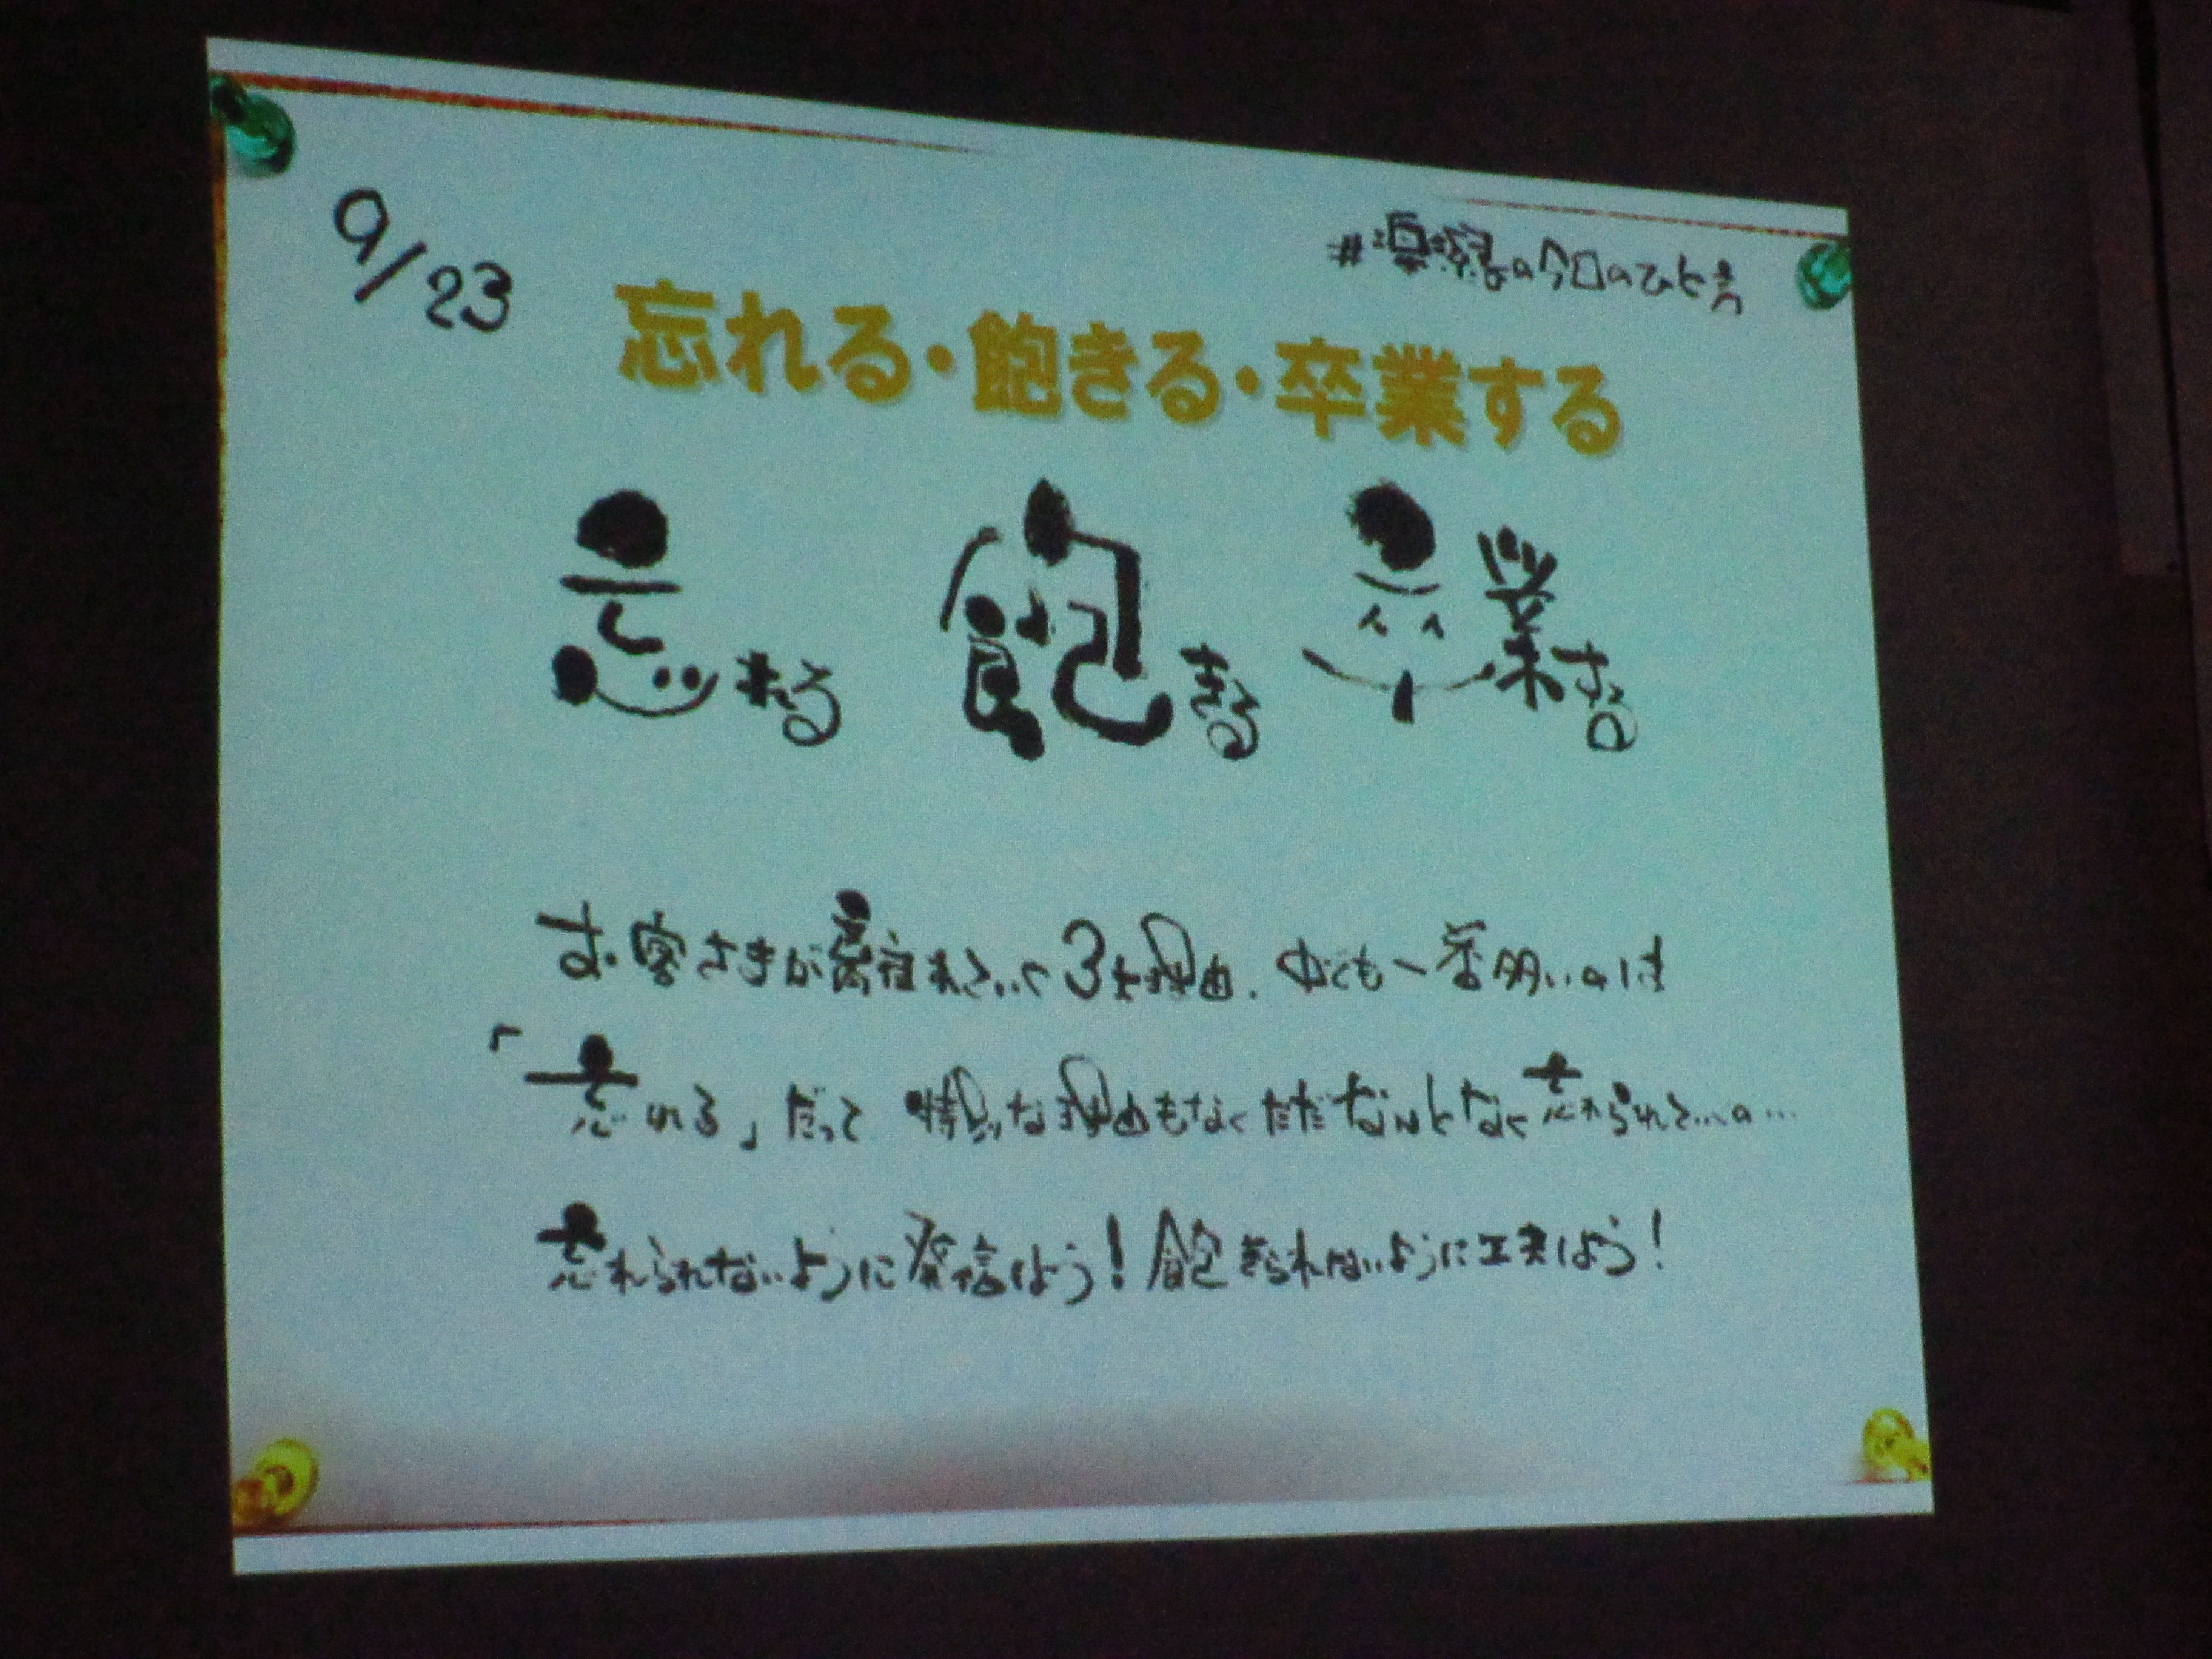 9/23
の今日のひと言
忘れる・飽きる・卒業する
忘れる 飽きる 卒業する
お客さまが離れていく3大理由。中でも一番多いのは
「忘れる」だって 特別な理由もなくただなんとなく忘れられていくの…
忘れられないように発信しよう!飽きられないように工夫しよう!